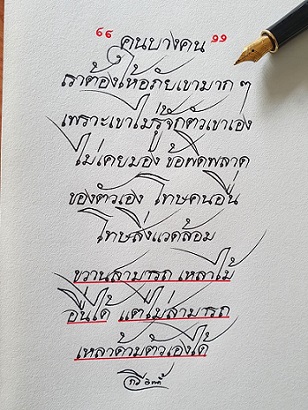 “คนบางคน”
เราต้องให้อภัยเขามาก ๆ
เพราะเขาไม่รู้จักตัวเขาเอง
ไม่เคยมอง ข้อผิดพลาด
ของตัวเอง โทษคนอื่น
โทษสิ่งแวดล้อม
ขวานสามารถ เหลาไม้
อื่นได้ แต่ไม่สามารถ
เหลาด้ามตัวเองได้